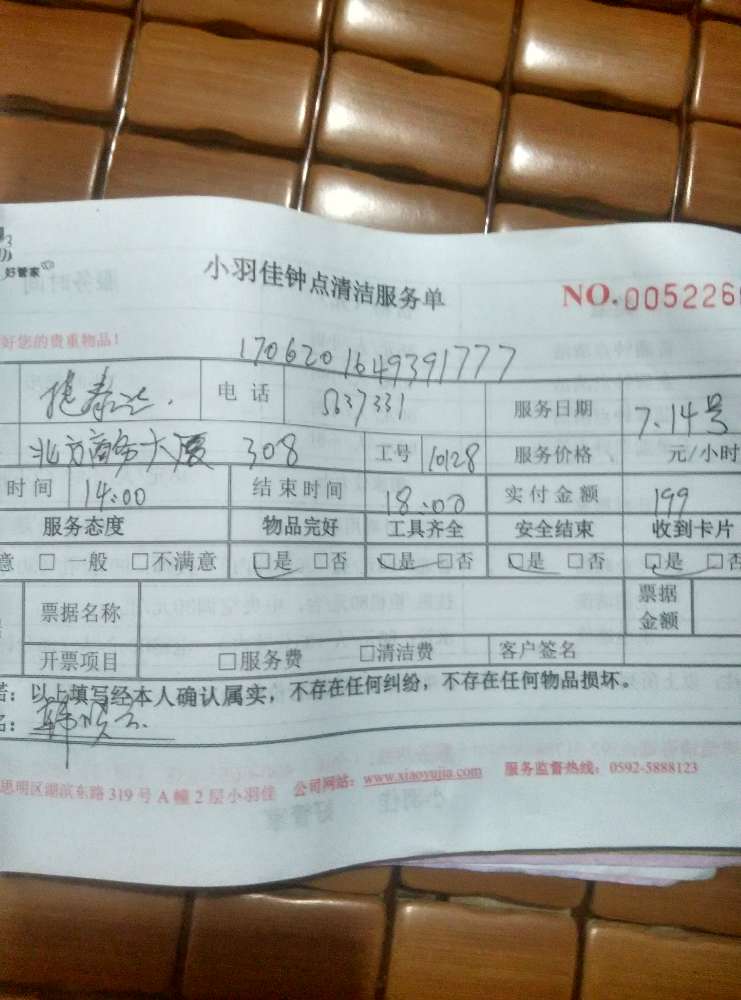 好管家
小羽佳钟点清洁服务单 NO.0052260
好您的贵重物品!
1706201649391777
捷泰达 电话 5637331 服务日期 7.14号
北方商务大厦 308 工号 10128 服务价格 元/小时
时间 14:00 结束时间 18:00 实付金额 199
服务态度 物品完好 工具齐全 安全结束 收到卡片
意 □一般 □不满意 □是 □否 □是 □否 □是 □否 □是 □否
票据名称 票据金额
开票项目 □服务费 □清洁费 客户签名
诺:以上填写经本人确认属实,不存在任何纠纷,不存在任何物品损坏。
名:
思明区湖滨东路319号A幢2层小羽佳 公司网站:www.xiaoyujia.com 服务监督热线:0592-5888123